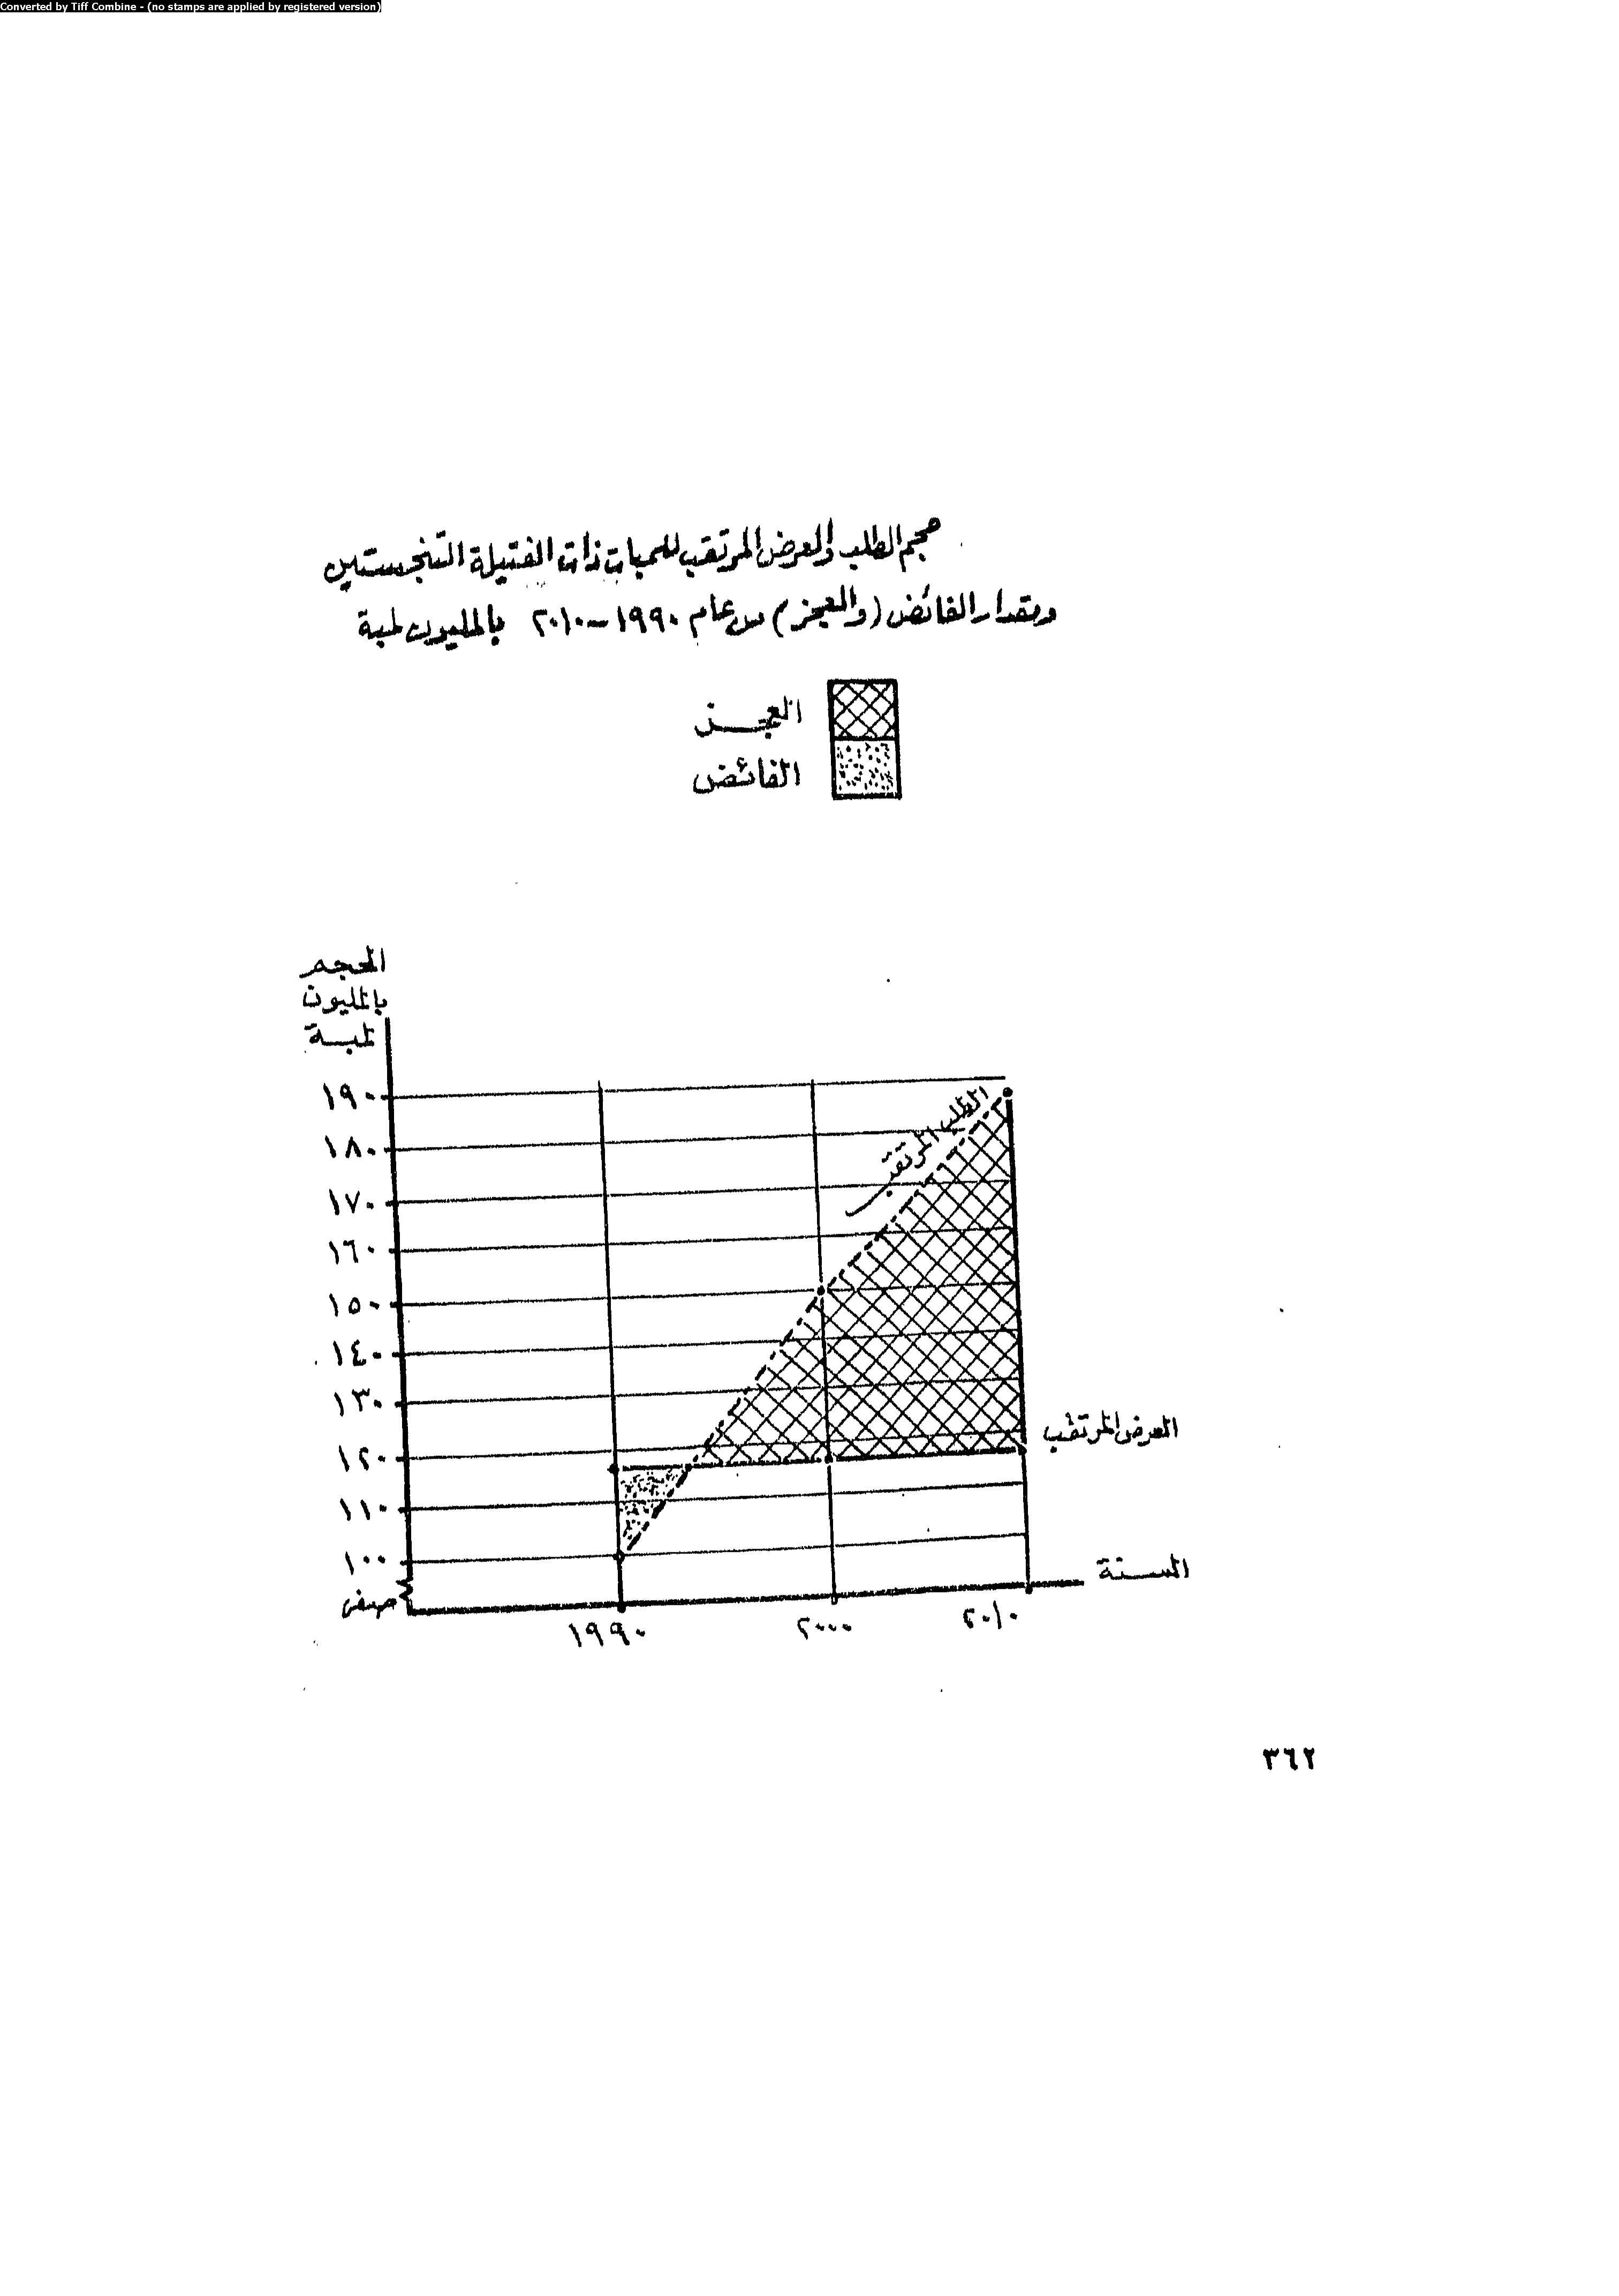 Converted by Tiff Combine - (no stamps are applied by registered version)
حجم الطلب والعرض المرتقب للمبات ذات الفتيلة التنجستين
ومقدار الفائض (والعجز) من عام ١٩٩٠-٢٠١٠ بالمليون لمبة
العجز
الفائض
الحجم
بالمليون
لمبة
١٩٠
١٨٠
١٧٠
١٦٠
١٥٠
١٤٠
١٣٠
١٢٠
١١٠
١٠٠
صفر
الطلب المرتقب
العرض المرتقب
السنة
١٩٩٠
٢٠٠٠
٢٠١٠
٣٦٢